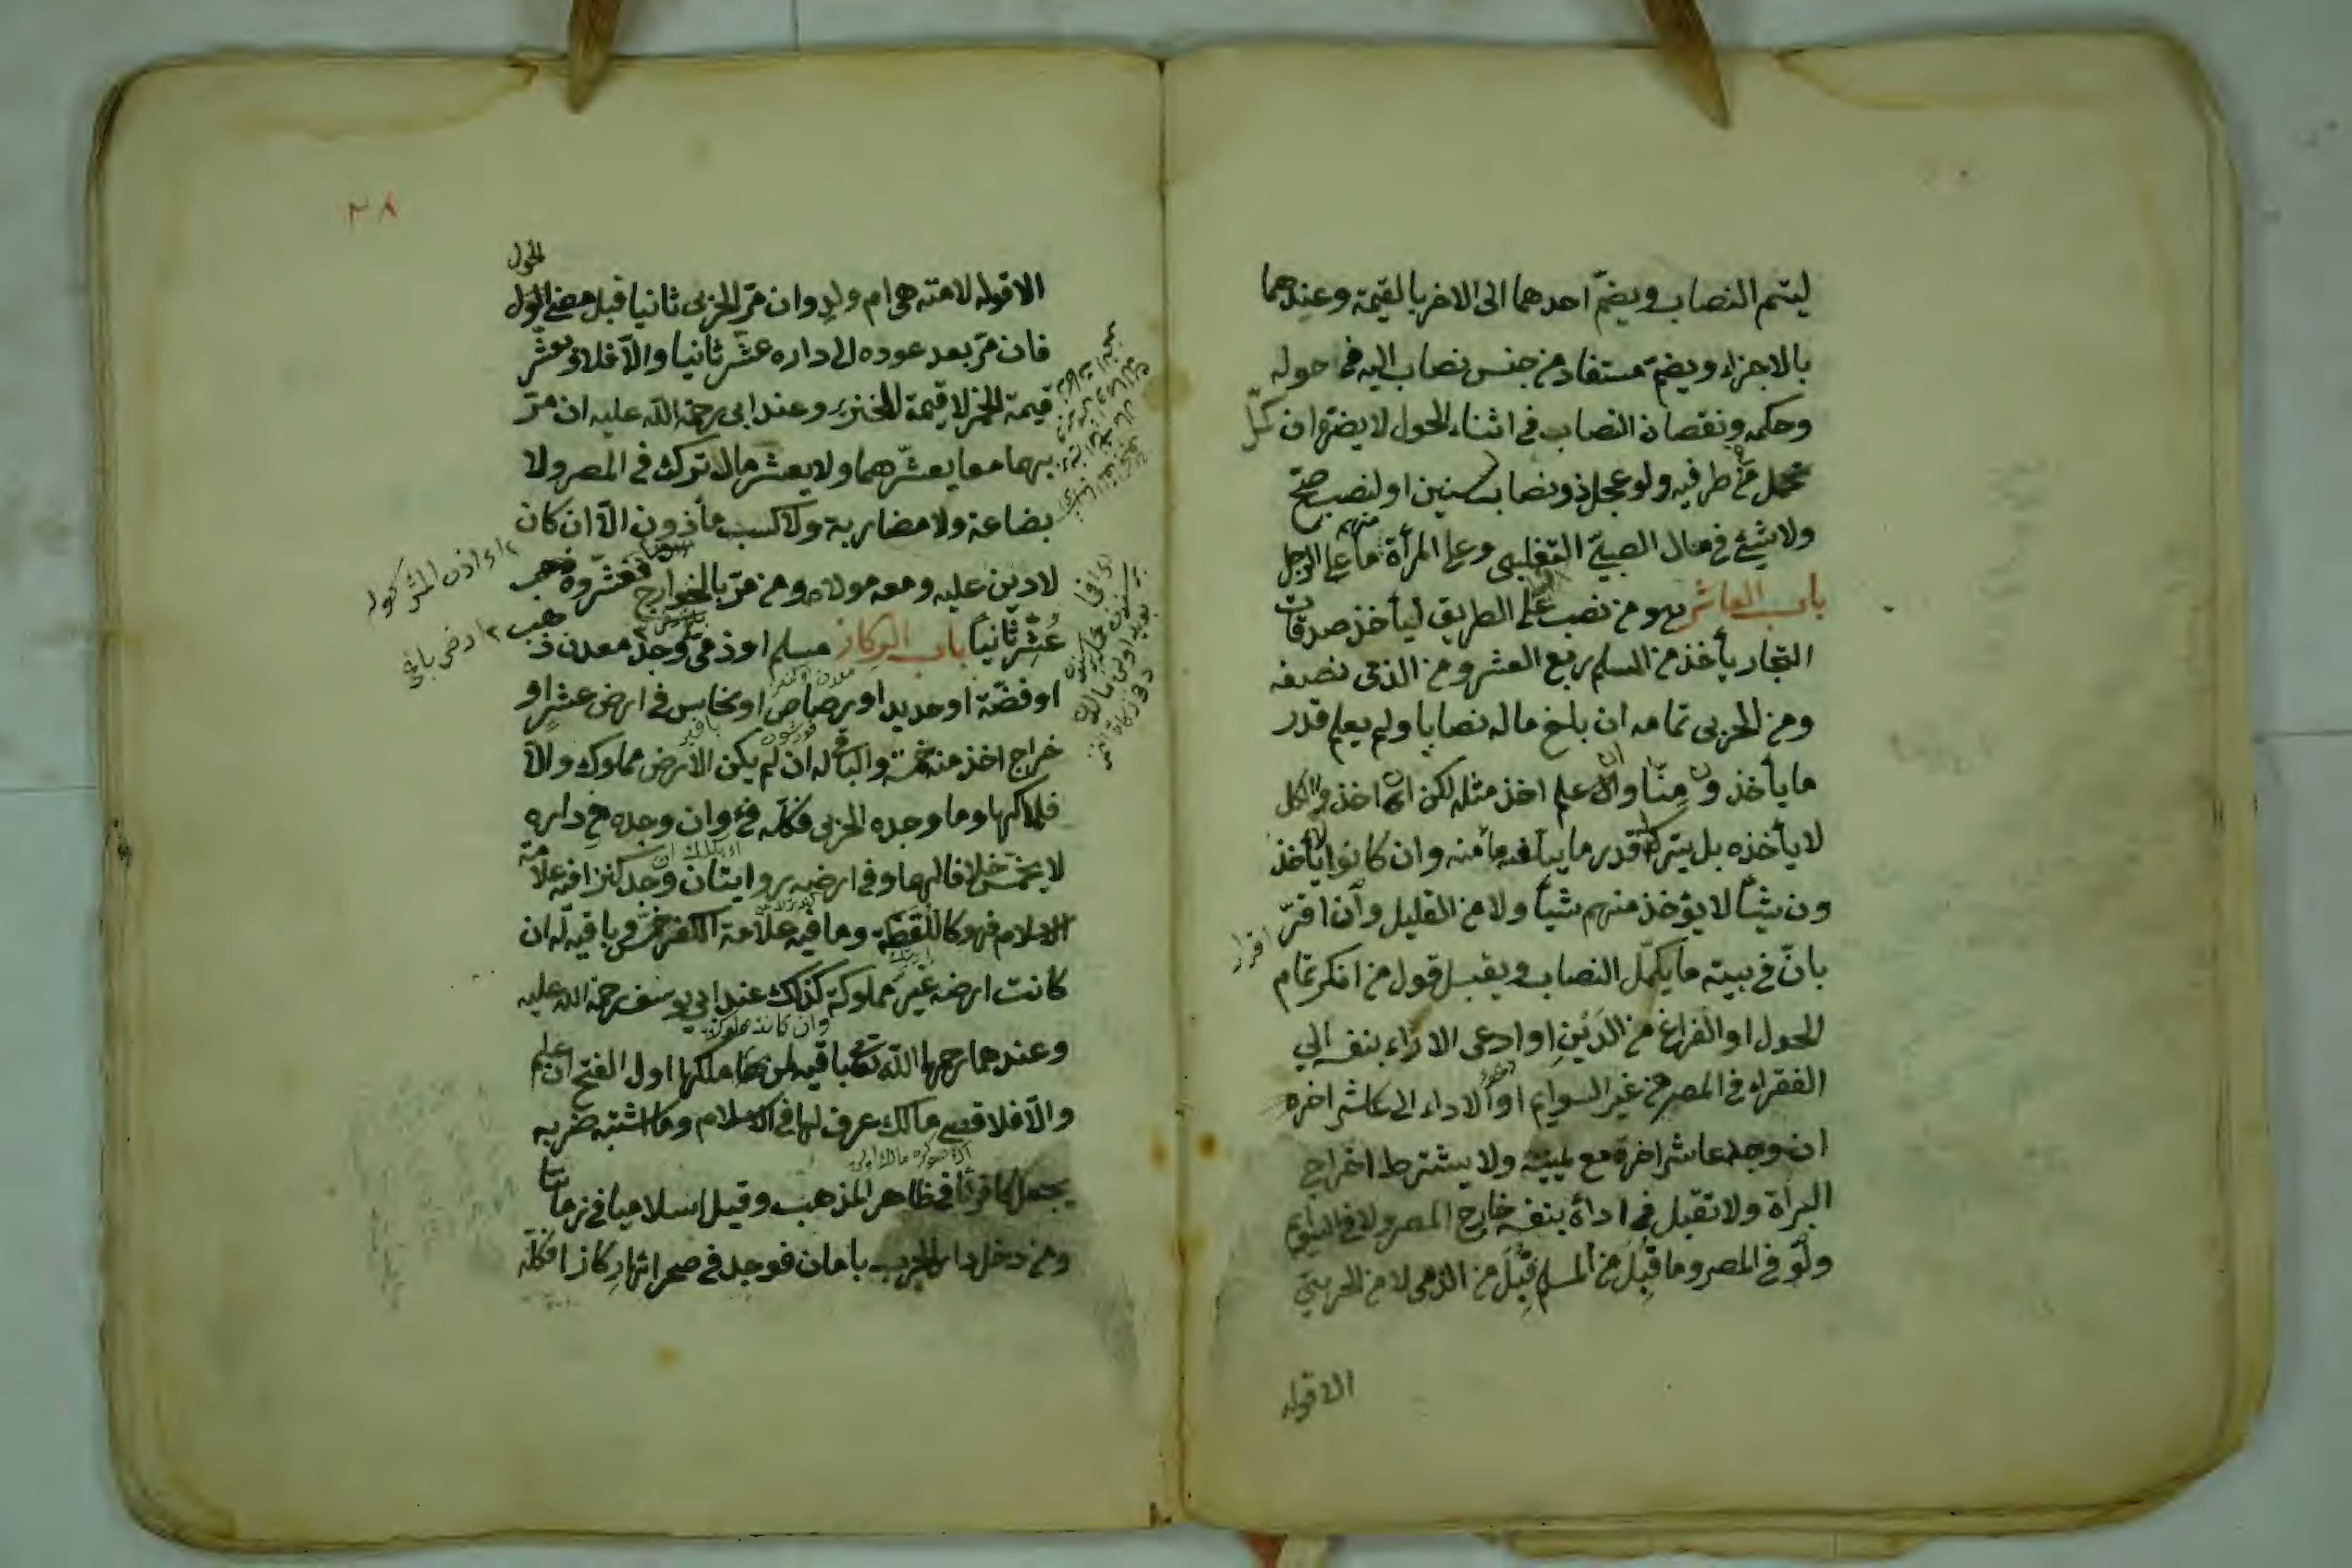 ليتم النصاب ويضمّ احدهما الى الاخر بالقيمة وعندهما
بالاجزاء ويضمّ مستفاد من جنس نصاب اليه في حوله
وحكمه ونقصان النصاب في اثناء الحول لا يضرّ ان كمّل
في طرفيه ولو عجل ذو نصاب لسنين او لنصب صحّ
ولا شيئ في مال الصبيّ التغلبي وعلى المرأة منهم ما على الرجل
باب العاشر هو من نصب على الطريق ليأخذ صدقات
التجار يأخذ من المسلم ربع العشر ومن الذمى نصفه
ومن الحربى تمامه ان بلغ ماله نصابا ولم يعلم قدر
ما يأخذون منّا وان علم اخذ مثله لكن ان اخذوا الكل
لا يأخذه بل يترك قدر ما يبلغه مأمنه وان كانوا لا يأخذ
ون شيأ لا يؤخذ منهم شيأ ولا من القليل وان اقرّ
اقرار
بانّ في بيته ما يكمّل النصاب ويقبل قول من انكر تمام
الحول او الفراغ من الدَينِ او ادعى الاداء بنفسه الى
الفقراء في المصر في غير السوايم او الاداء الى عاشر اخر
ان وجد عاشر اخر مع يمينه ولا يشترط اخراج
البراة ولا تقبل في اداءه بنفسه خارج المصر ولا في السوايم
ولو في المصر وما قُبِلَ من المسلم قُبِلَ من الذمى لا من الحربيّ
الا قوله
٣٨
الحول
الا قوله لامته هى ام ولدى وان مرّ الحربى ثانيا قبل مضى الحول
فان مرّ بعد عوده الى داره عشّر ثانيا والّا فلا ويعشّر
قيمة الخمر لا قيمة الخنزير وعند ابى رحمة اللّه عليه ان مرّ
بهما معا يعشّرهما ولا يعشر مال ترك في المصر ولا
بضاعة ولا مضاربة ولا كسب مأذون الّا ان كان
لا دين عليه ومعه مولاه ومن مرّ بالخوارج فعشّروه
عُشِّر ثانياً باب الركاز مسلم او ذمى وجد معدن ذهب
او فضّة او حديد او رصاص او نحاس في ارض عشرٍ او
خراج اخذ منه خمسه والباقى له ان لم يكن الارض مملوكة والّا
فلمالكها وما وجده الحربى فكلّه فئ وان وجده في داره
لا يخمّس خلافا لهما وفي ارضه روايتان وان وجد كنزا فيه علامة
الاسلام فهو كاللقطة وما فيه علامة الكفر خمّس وباقيه له ان
كانت ارضه غير مملوكة كذلك عند ابي يوسف رحمة الله عليه
وان كانت مملوكة
وعندهما رحمهما اللّه تعالى باقيه لمن ملكها اول الفتح ان علم
والّا فلاقصى مالك عرف لها في الاسلام وما اشتبه ضربه
يجعل كافريّا في ظاهر المذهب وقيل اسلاميا في زماننا
ومن دخل دار الحرب بامان فوجد في صحرائها ركازا فكلّه